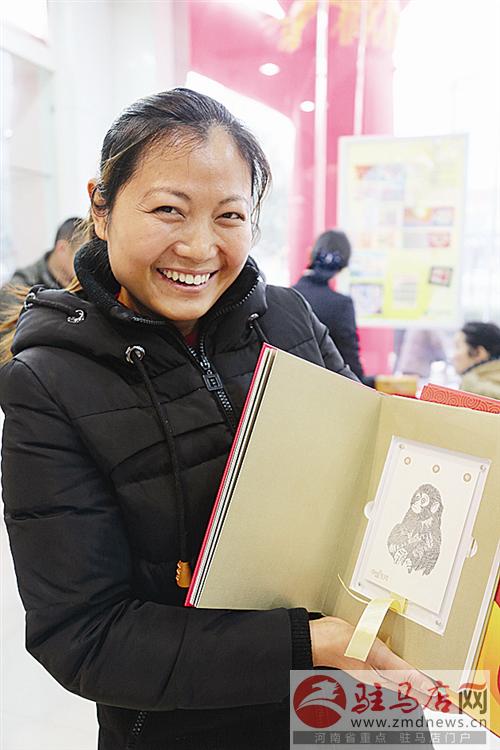 驻马店网
www.zmdnews.cn
河南省重点 驻马店门户